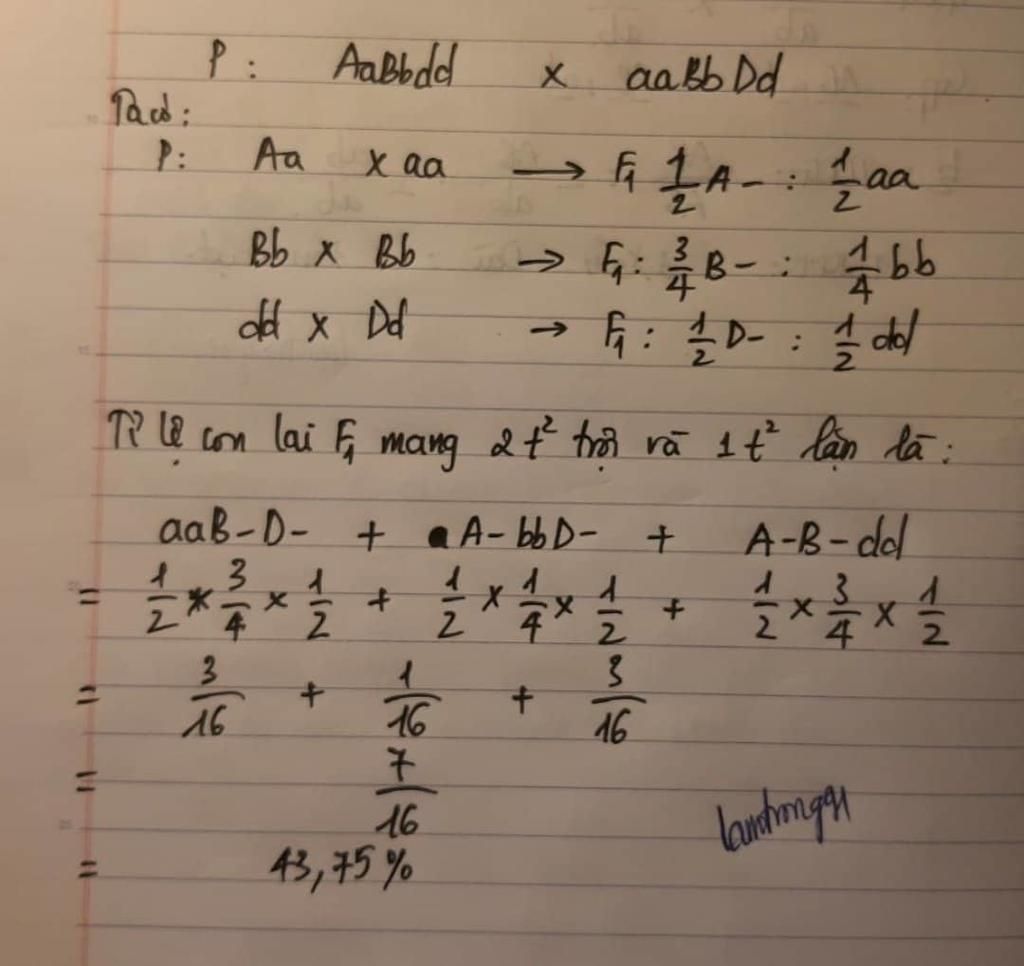 P: AaBbdd x aaBbDd
Ta có:
P: Aa x aa → F₁ 1/2 A- : 1/2 aa
Bb x Bb → F₁: 3/4 B- : 1/4 bb
dd x Dd → F₁: 1/2 D- : 1/2 dd
Tỉ lệ con lai F₁ mang 2t² trội và 1t² lặn là:
aaB-D- + A-bbD- + A-B-dd
= 1/2 x 3/4 x 1/2 + 1/2 x 1/4 x 1/2 + 1/2 x 3/4 x 1/2
= 3/16 + 1/16 + 3/16
= 7/16
= 43,75%